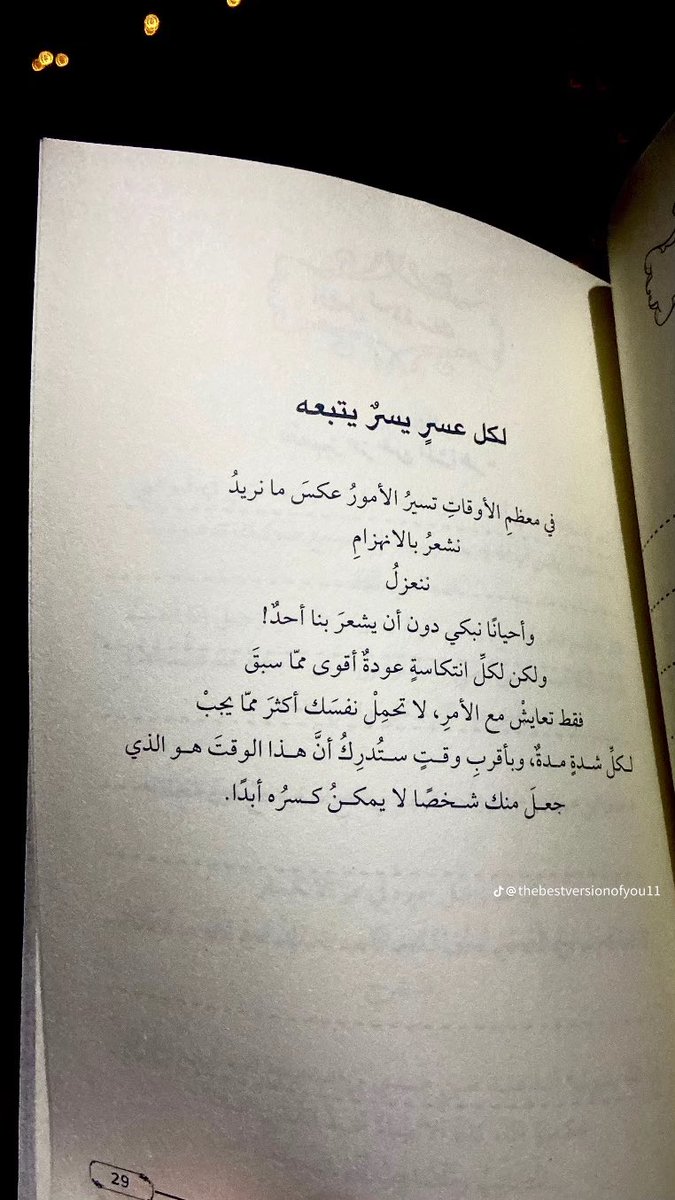 لكل عسرٍ يسرٌ يتبعه
في معظمِ الأوقاتِ تسيرُ الأمورُ عكسَ ما نريدُ
نشعرُ بالانهزامِ
ننعزلُ
وأحيانًا نبكي دون أن يشعرَ بنا أحدٌ!
ولكن لكلِّ انتكاسةٍ عودةٌ أقوى ممّا سبقَ
فقط تعايشْ مع الأمرِ، لا تحمِلْ نفسَك أكثرَ ممّا يجبْ
لكلِّ شدةٍ مدةٌ، وبأقربِ وقتٍ ستُدرِكُ أنَّ هذا الوقتَ هو الذي
جعلَ منك شخصًا لا يمكنُ كسرُه أبدًا.
@thebestversionofyou11
29